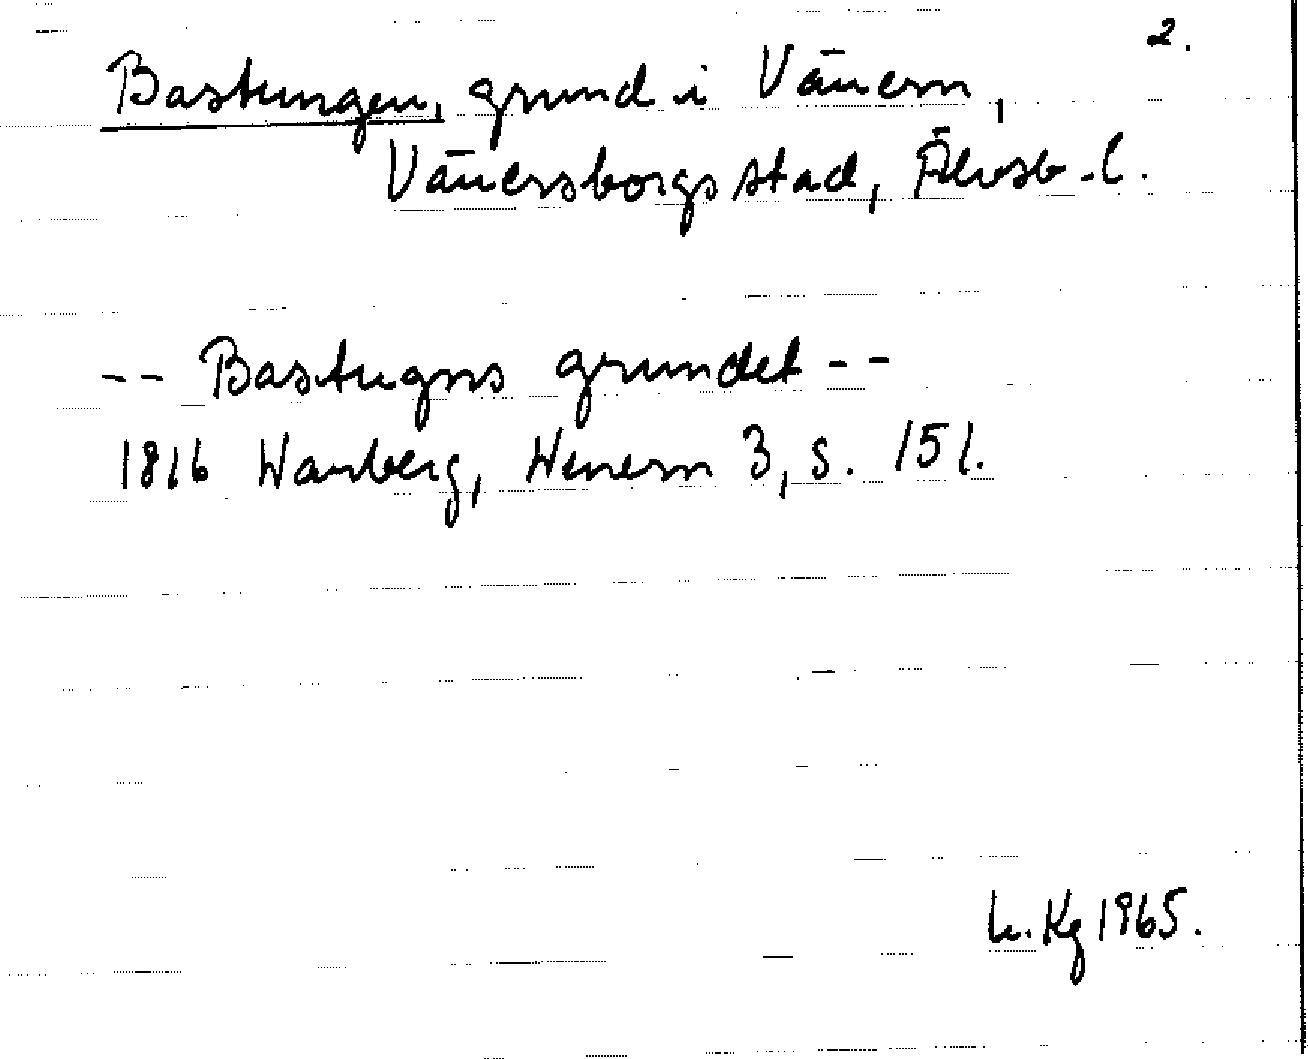 2.
Bastungen, grund i Vänern,
Vänersborgs stad, Älvsb. l.
-- Bastugns grundet --
1816 Wanberg, Wenern 3, s. 151.
L. Kg 1965.